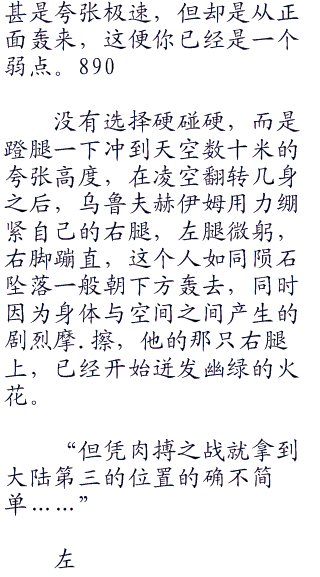 甚是夸张极速，但却是从正
面轰来，这便你已经是一个
弱点。890
没有选择硬碰硬，而是
蹬腿一下冲到天空数十米的
夸张高度，在凌空翻转几身
之后，乌鲁夫赫伊姆用力绷
紧自己的右腿，左腿微躬，
右脚蹦直，这个人如同陨石
坠落一般朝下方轰去，同时
因为身体与空间之间产生的
剧烈摩.擦，他的那只右腿
上，已经开始迸发幽绿的火
花。
“但凭肉搏之战就拿到
大陆第三的位置的确不简
单……”
左